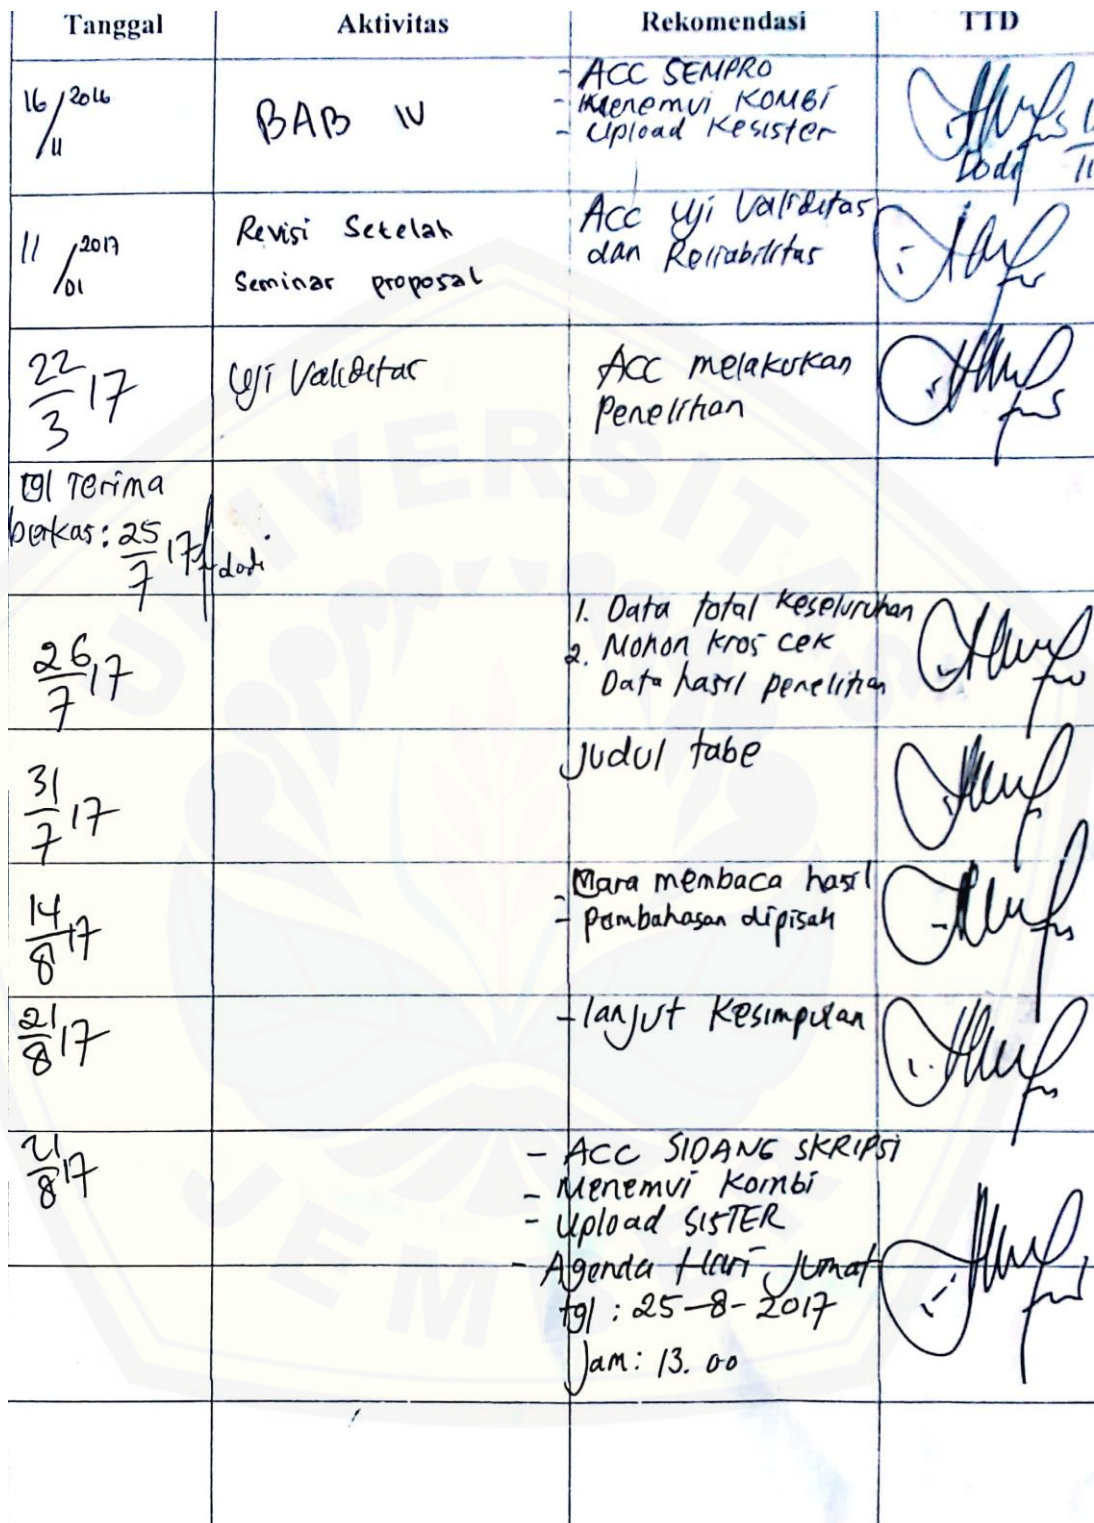 Tanggal Aktivitas Rekomendasi TTD
16/11 2016 BAB IV - ACC SEMPRO
- Menemui KOMBI
- Upload Kesister
Dodi
11/01 2017 Revisi Setelah Seminar proposal
Acc Uji Validitas
dan Reliabilitas
22/3 17 Uji Validitas Acc melakukan
Penelitian
tgl Terima
berkas: 25/7 17 dodi
26/7 17 1. Data total Keseluruhan
2. Mohon kros cek
Data hasil penelitian
31/7 17 Judul tabe
14/8 17 - membaca hasil
- pembahasan dipisah
21/8 17 - lanjut Kesimpulan
21/8 17 - ACC SIDANG SKRIPSI
- Menemui Kombi
- Upload SISTER
- Agenda Hari Jumat
tgl : 25-8-2017
Jam: 13.00
UNIVERSITAS
JEMBER